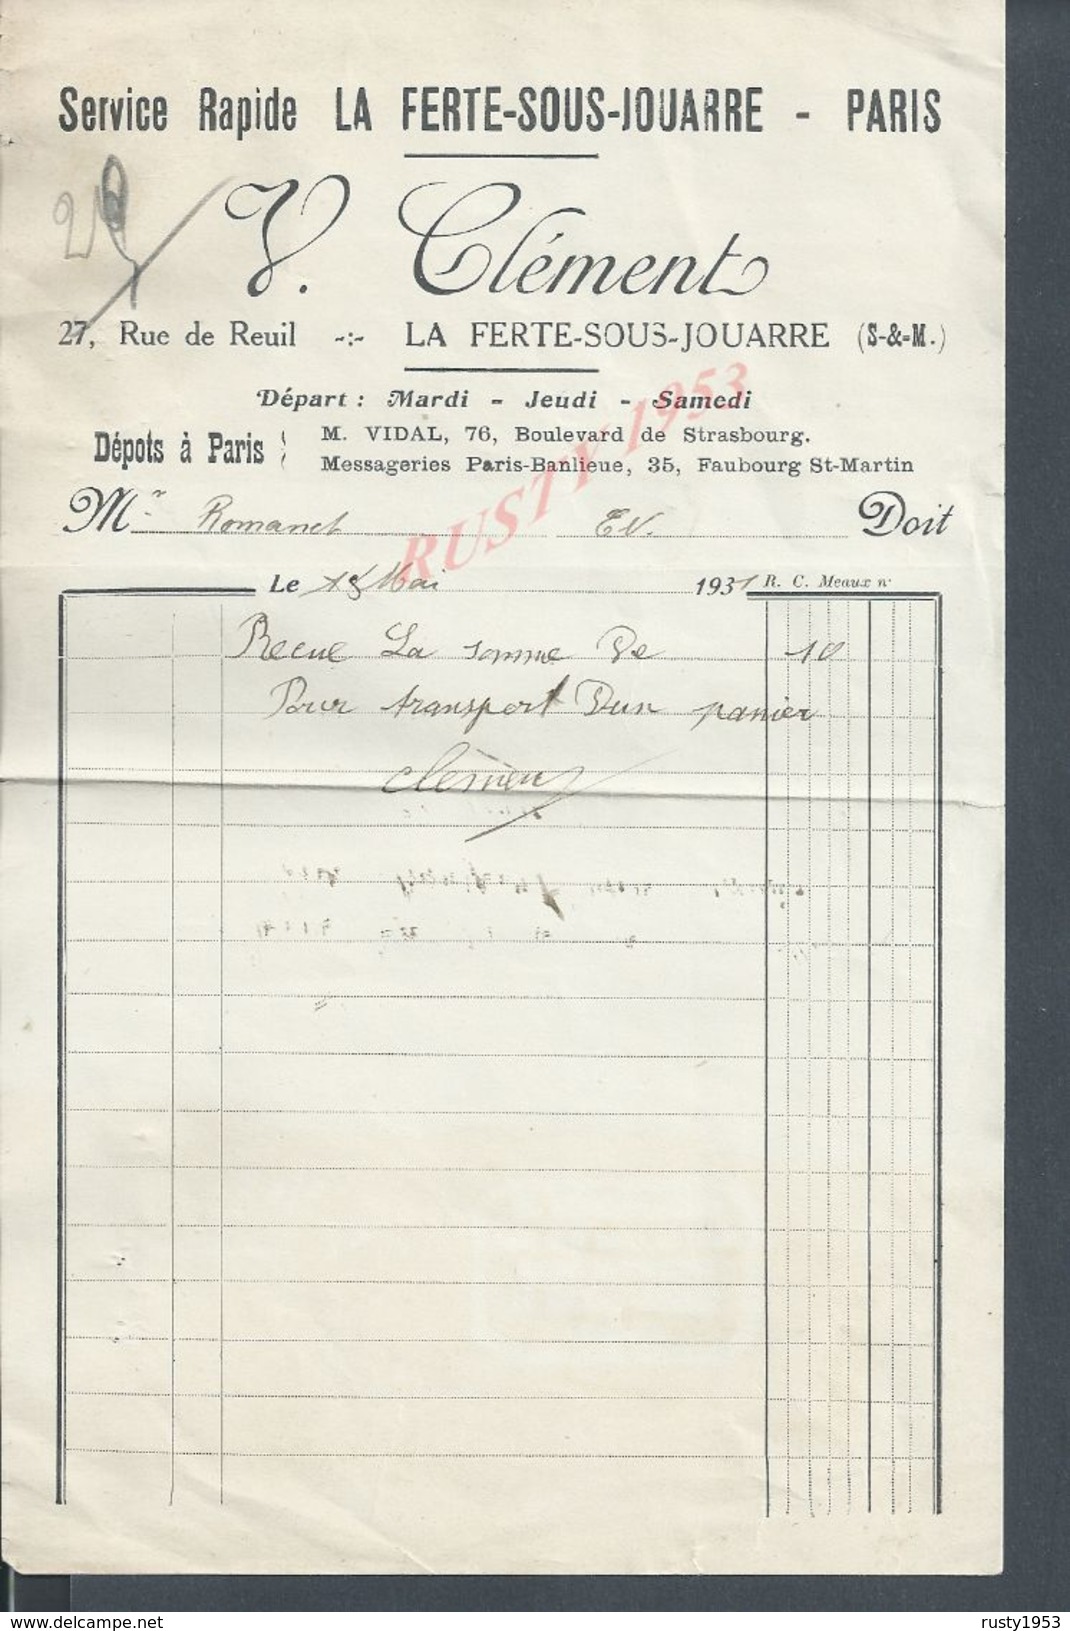 Service Rapide LA FERTE-SOUS-JOUARRE - PARIS
V. Clément
27, Rue de Reuil -:- LA FERTE-SOUS-JOUARRE (S-&-M.)
Départ : Mardi - Jeudi - Samedi
Dépots à Paris
M. VIDAL, 76, Boulevard de Strasbourg.
Messageries Paris-Banlieue, 35, Faubourg St-Martin
RUSTY 1953
Mr Romanet EV. Doit
Le 18 Mai 1931 R. C. Meaux n°
Recue La somme De 10
Pour transport Dun panier
Clément
www.delcampe.net
rusty1953